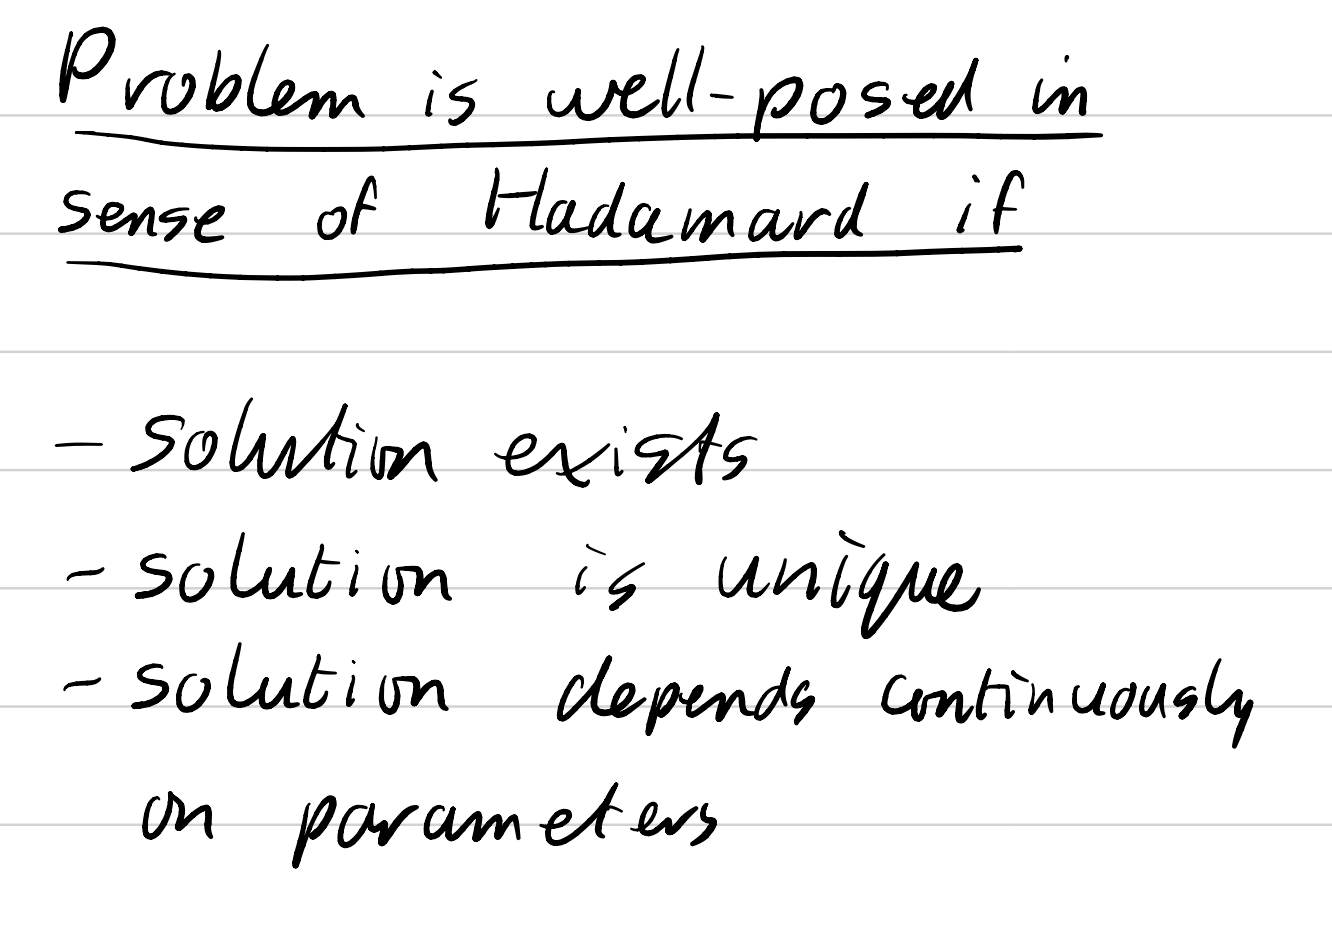 Problem is well-posed in
sense of Hadamard if
- solution exists
- solution is unique
- solution depends continuously
on parameters